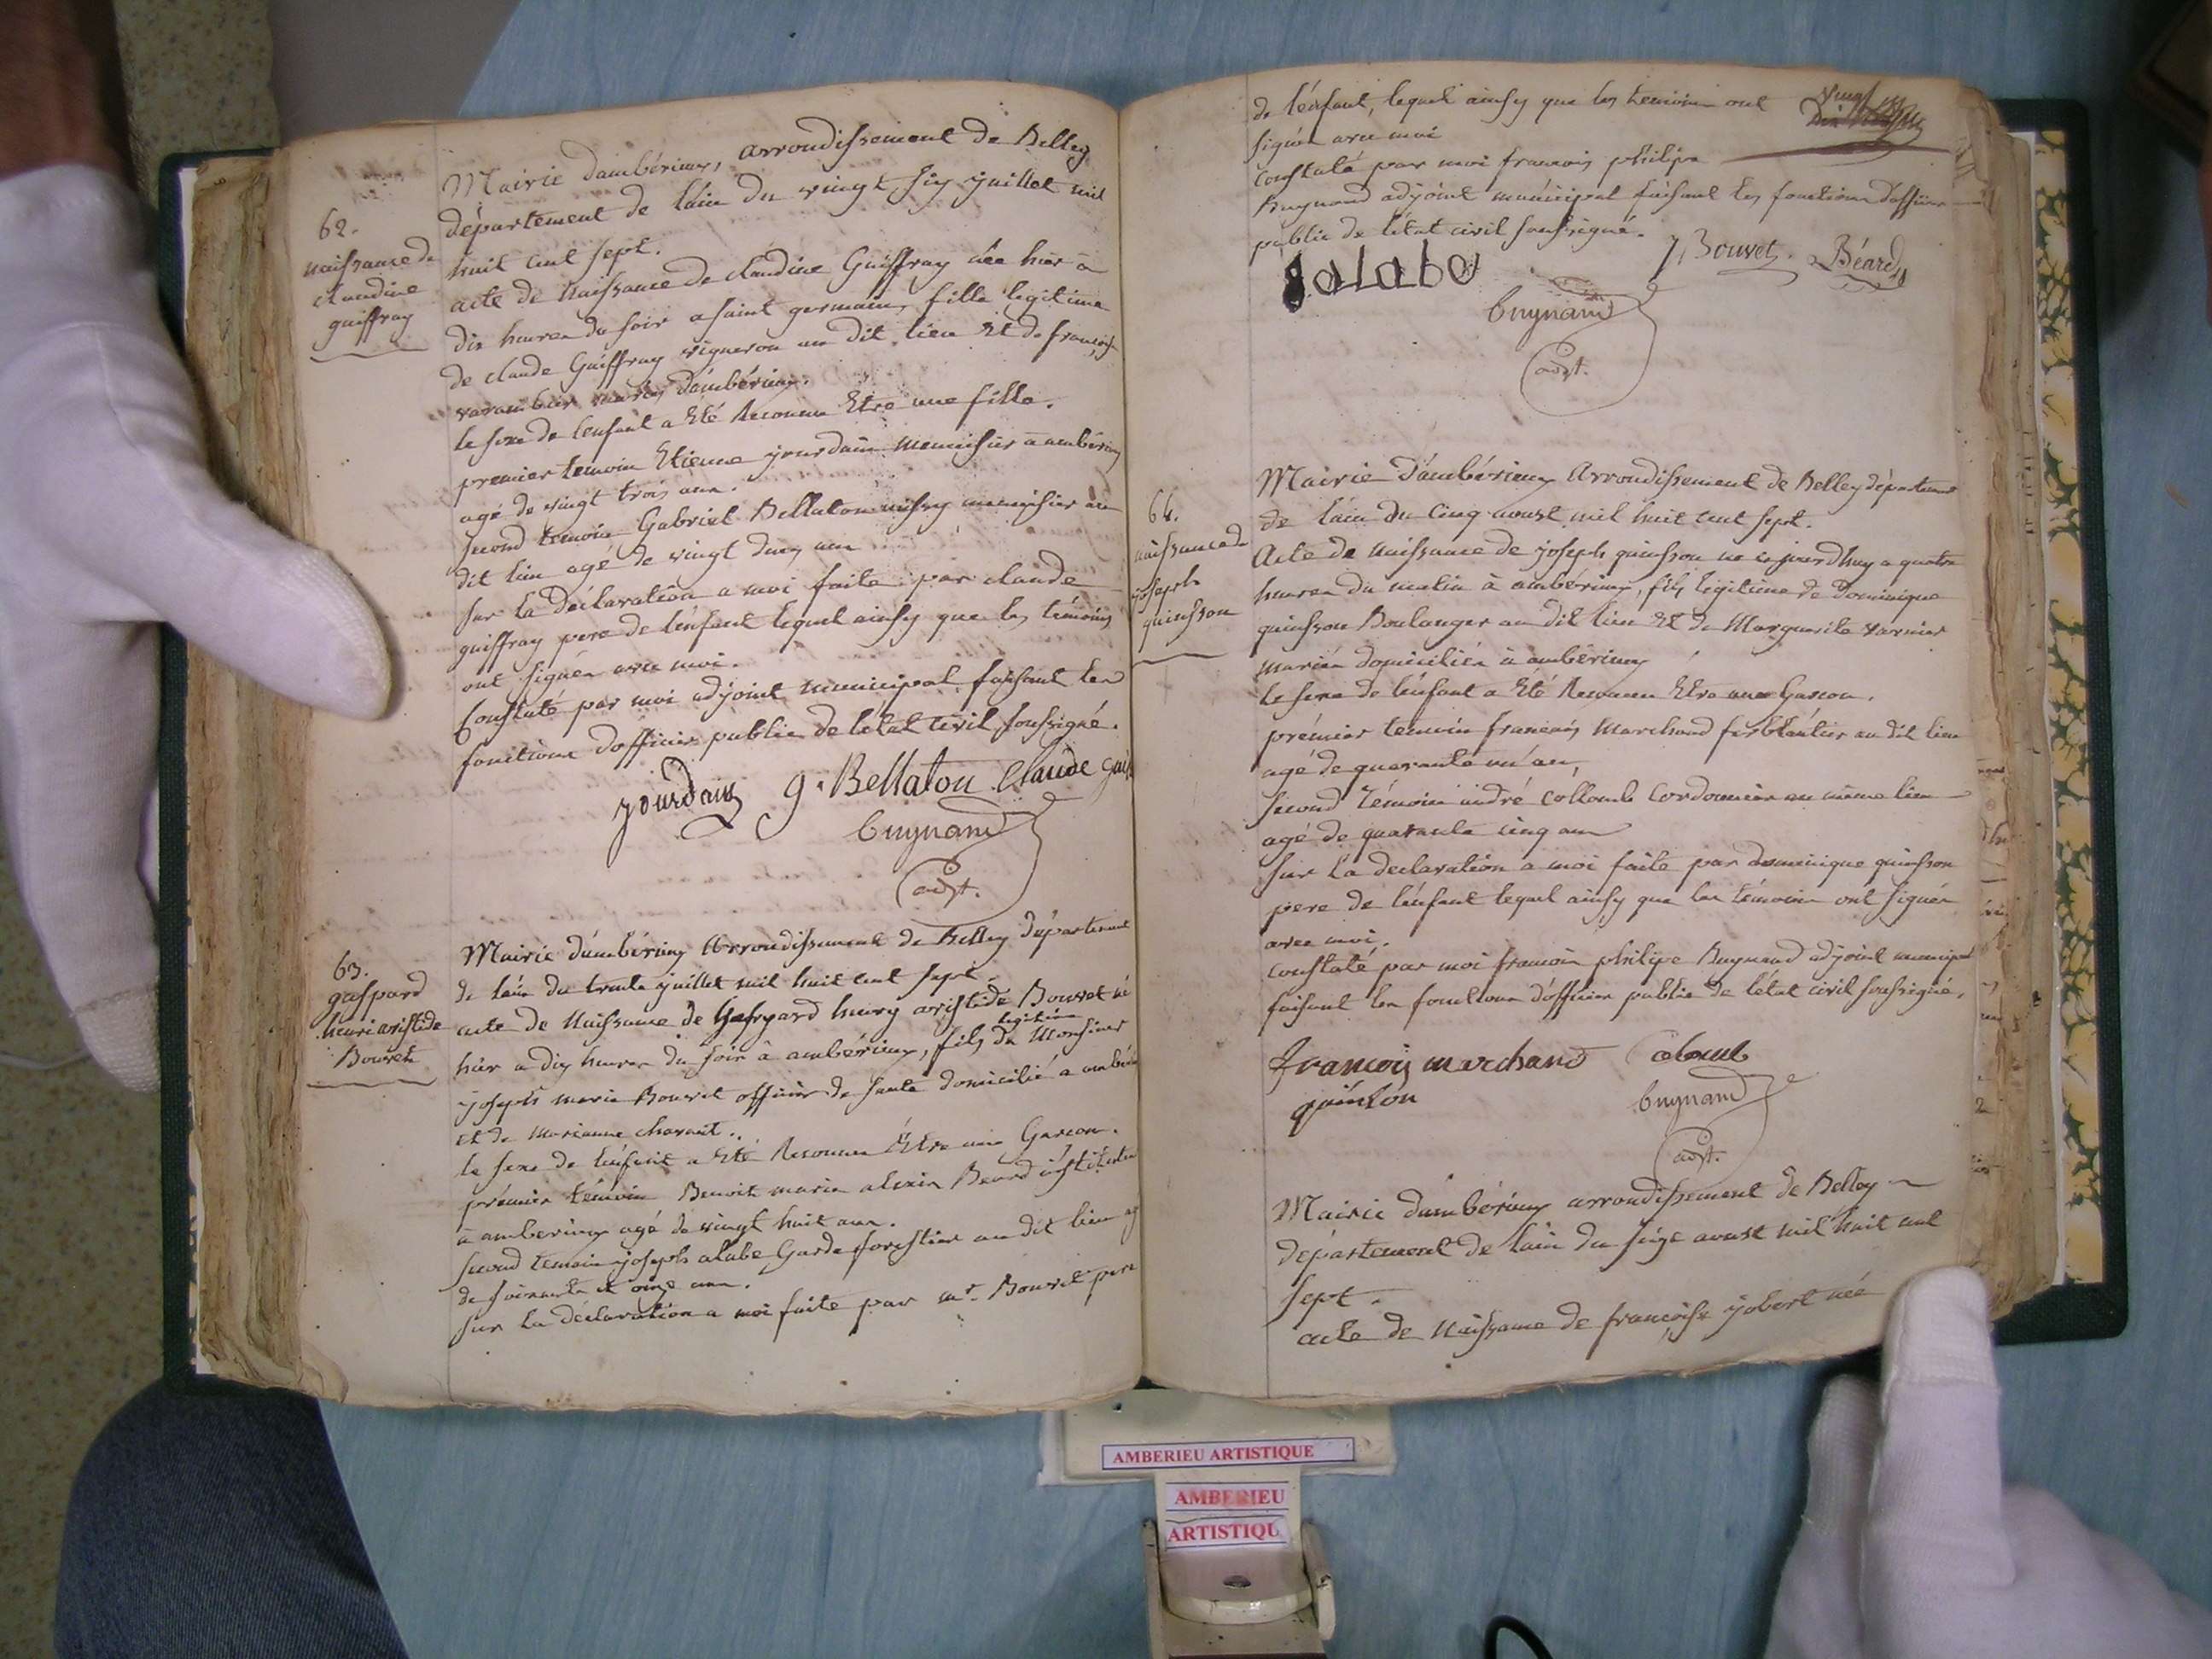 62.
naissance de
claudine
guiffray
Mairie dambérieux, arrondissement de Belley
département de lain du vingt six juillet mil
huit cent sept.
acte de naissance de claudine Guiffray née hier à
dix heures du soir a saint germain, fille legitime
de claude Guiffray vigneron au dit lieu Et de
mariés dambérieux.
le sexe de lenfant a Eté Reconnu Etre une fille.
premier temoin Etienne jourdain menuisier à ambérieux
agé de vingt trois ans.
second temoin Gabriel Bellaton aussy menuisier au
dit lieu agé de vingt deux ans
sur la déclaration a moi faite par claude
guiffray pere de lénfant lequel ainsy que les témoins
ont signés avec moi.
Constaté par moi adjoint municipal faisant les
fonctions dofficier public de létat civil soussigné.
jourdain g. Bellaton Claude
bugnand
adjt.
63.
gaspard
henri aristide
Bouvet
Mairie dámbérieux Arrondissement de Belley département
de láin du trente juillet mil huit cent sept.
acte de Naissance de Gaspard henry aristide Bouvet né
hier a dix heures du soir à ambérieux, fils legitime de Monsieur
joseph marie Bouvet officier de santé domicilié a
Et de marianne
le sexe de lénfant a Eté Reconnu Etre un Garcon.
prémier témoin Benoit marie alexis Beard
à amberieux agé de vingt huit ans.
second temoin joseph alabe Garde forestier au dit lieu
de soixante et onze ans.
sur la déclaration a moi faite par mr. Bouvet pere
de lénfant, lequel ainsy que les temoins ont
signés avec moi
constaté par moi francois philipe
Bugnand adjoint municipal faisant les fonctions dofficier
public de létat civil soussigné.
J Bouvet Béard
Jalabe
bugnand
adjt.
64.
naissance de
joseph
quinsson
Mairie D'ambérieux Arrondissement de Belley département
de láin du cinq aoust mil huit cent sept.
Acte de naissance de joseph quinsson né cejourdhuy a quatre
heures du matin à ambérieux, fils legitime de Dominique
quinsson Boulanger au dit lieu Et de Marguerite varnier
mariés domiciliés à ambérieux
le sexe de lénfant a Eté Reconnu Etre un Garcon.
prémier temoin francois Marchand ferblantier au dit lieu
agé de quarante un an,
second témoin andré collomb Cordonnier au même lieu
agé de quarante cinq ans
sur la declaration a moi faite par dominique quinsson
pere de lénfant lequel ainsy que les témoins ont signés
avec moi.
constaté par moi francois philipe Bugnand adjoint municipal
faisant les fonctions d'officier public de létat civil soussigné.
francois marchand
quinson
bugnand
adjt.
Mairie dambérieux arrondissement de Belley
département de lain du seize aoust mil huit cent
sept.
acte de Naissance de francoise jobert née
AMBERIEU ARTISTIQUE
AMBERIEU
ARTISTIQU